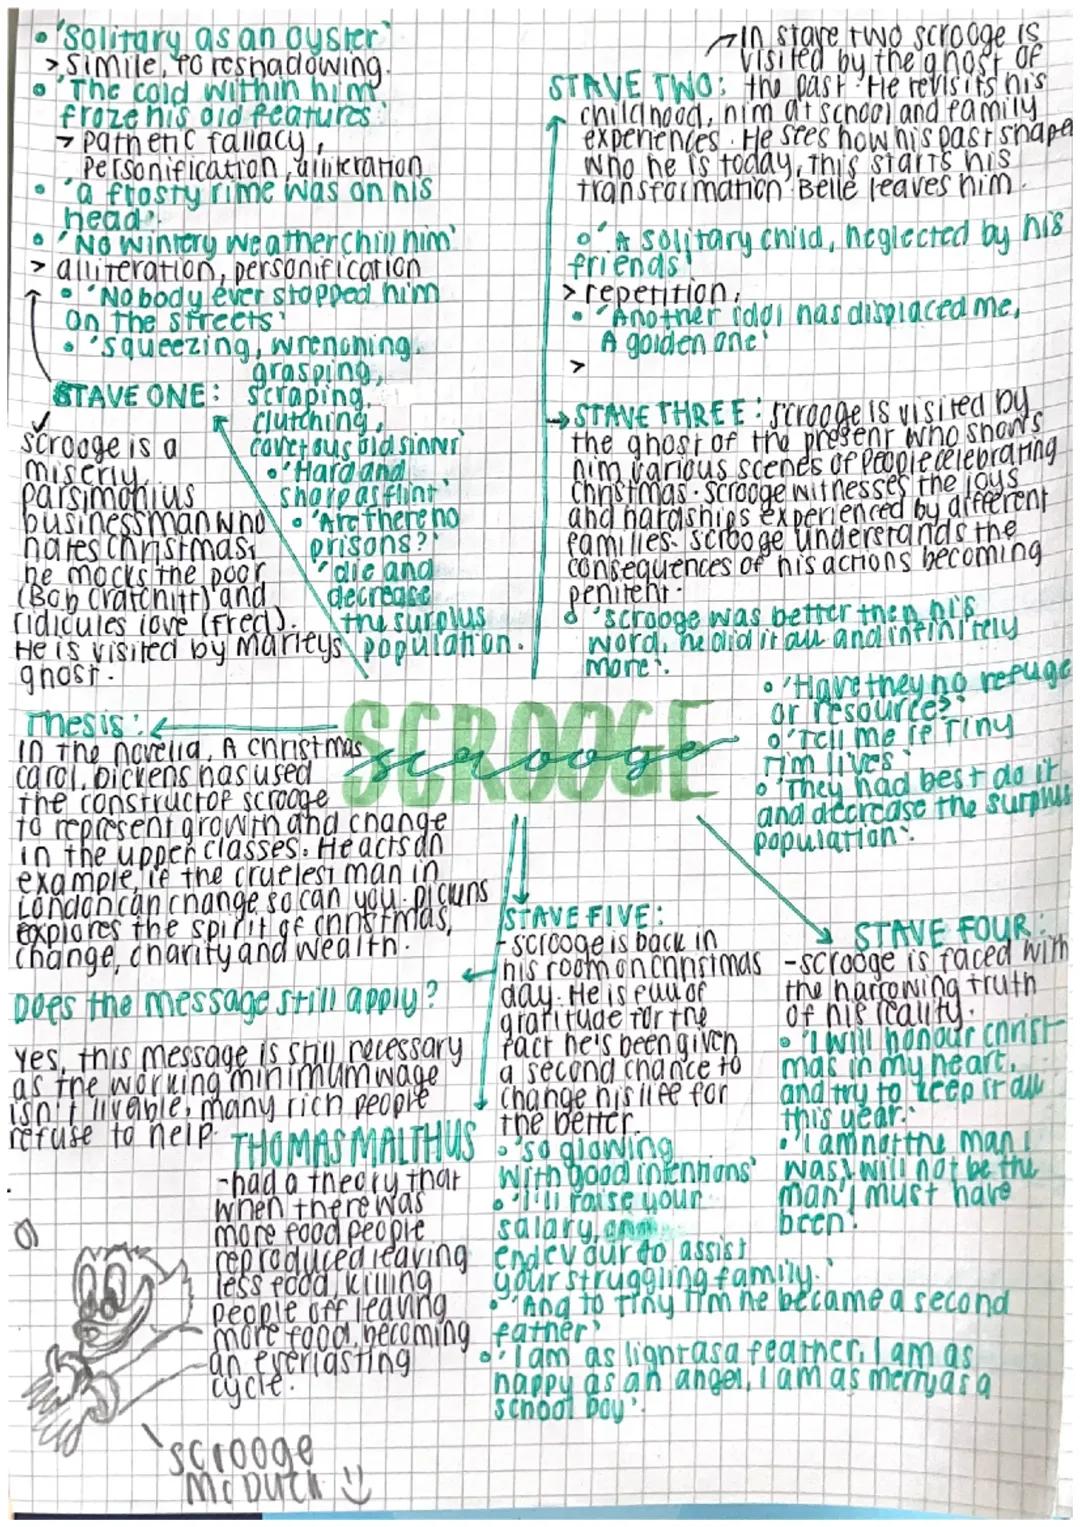 • 'Solitary as an oyster'
> Simile, foreshadowing.
• 'The cold within him
froze his old features'
→ pathetic fallacy,
Personification, alliteration
• 'a frosty rime was on his
head'.
• 'No wintery weather chill him'
> alliteration, personification
• 'Nobody ever stopped him
on the streets'
• 'squeezing, wrenching,
grasping,
scraping,
clutching,
covetous old sinner'
• 'Hard and
sharp as flint'
• 'Are there no
prisons?'
'die and
decrease
the surplus
population.
STAVE ONE:
scrooge is a
miserly,
parsimonius
businessman who
hates christmas,
he mocks the poor
(Bob Cratchitt) and
ridicules love (fred).
He is visited by Marleys
ghost.
STAVE TWO:
→ in stave two scrooge is
visited by the ghost of
the past. He revisits his
childhood, him at school and family
experiences. He sees how his past shape
who he is today, this starts his
transformation. Belle leaves him.
• 'A solitary child, neglected by his
friends'
> repetition,
• 'Another idol has displaced me,
A golden one'
>
→ STAVE THREE: scrooge is visited by
the ghost of the present who shows
him various scenes of people celebrating
christmas. scrooge witnesses the joys
and hardships experienced by different
families. scrooge understands the
consequences of his actions becoming
penitent.
• 'scrooge was better then his
word, he did it all and infinitely
more'.
• 'Have they no refuge
or resource?'
• 'Tell me if Tiny
Tim lives'
• 'They had best do it
and decrease the surplus
population'.
SCROOGE
scrooge
Thesis:
In the novella, A christmas
carol, Dickens has used
the construct of scrooge
to represent growth and change
in the upper classes. He acts an
example, if the cruelest man in
London can change so can you. Dickens
explores the spirit of christmas,
change, charity and wealth.
Does the message still apply?
Yes, this message is still necessary
as the working minimum wage
isn't livable, many rich people
refuse to help.
STAVE FIVE:
- scrooge is back in
his room on christmas
day. He is full of
gratitude for the
fact he's been given
a second chance to
change his life for
the better.
• 'so glowing
with good intentions'
• 'I'll raise your
salary, and
endevour to assist
your struggling family.'
• 'And to Tiny Tim he became a second
father'
• 'I am as light as a feather, I am as
happy as an angel, I am as merry as a
school boy'.
STAVE FOUR:
- scrooge is faced with
the harrowing truth
of his reality.
• 'I will honour christ-
mas in my heart,
and try to keep it all
this year.'
• 'I am not the man I
was, I will not be the
man I must have
been'
THOMAS MALTHUS
- had a theory that
when there was
more food people
reproduced leaving
less food, killing
people off leaving
more food, becoming
an everlasting
cycle.
scrooge
McDuck